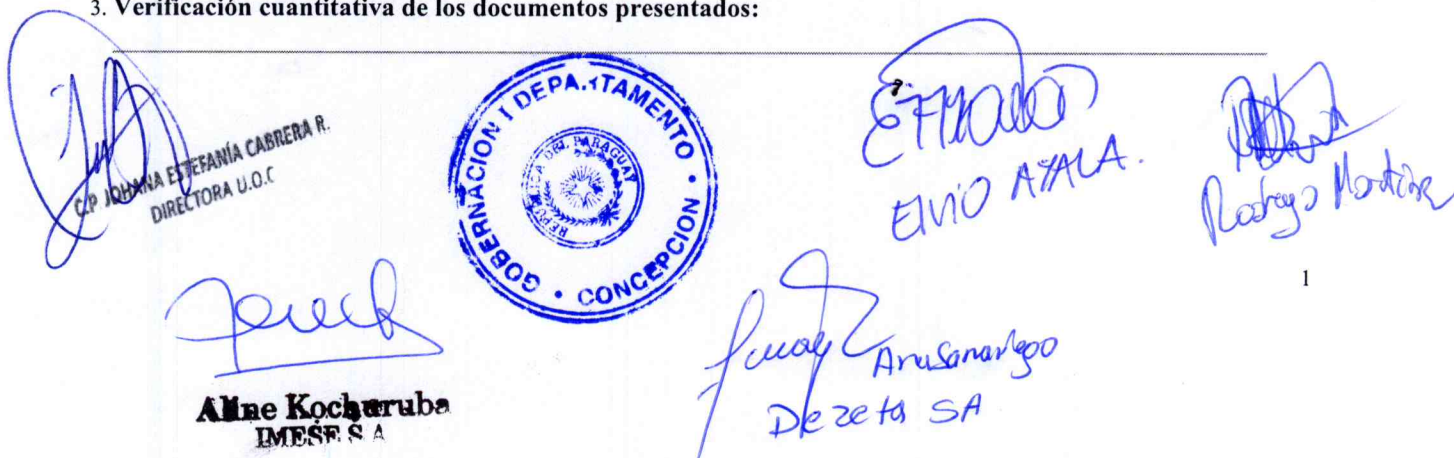 3. Verificación cuantitativa de los documentos presentados:
C.P. JOHANA ESTEFANÍA CABRERA R.
DIRECTORA U.O.C
GOBERNACION I DEPARTAMENTO
CONCEPCION
REPUBLICA DEL PARAGUAY
ElVIO AYALA.
Rodrigo Martínez
1
Aline Kocheruba
IMESE S A
Dezeta SA